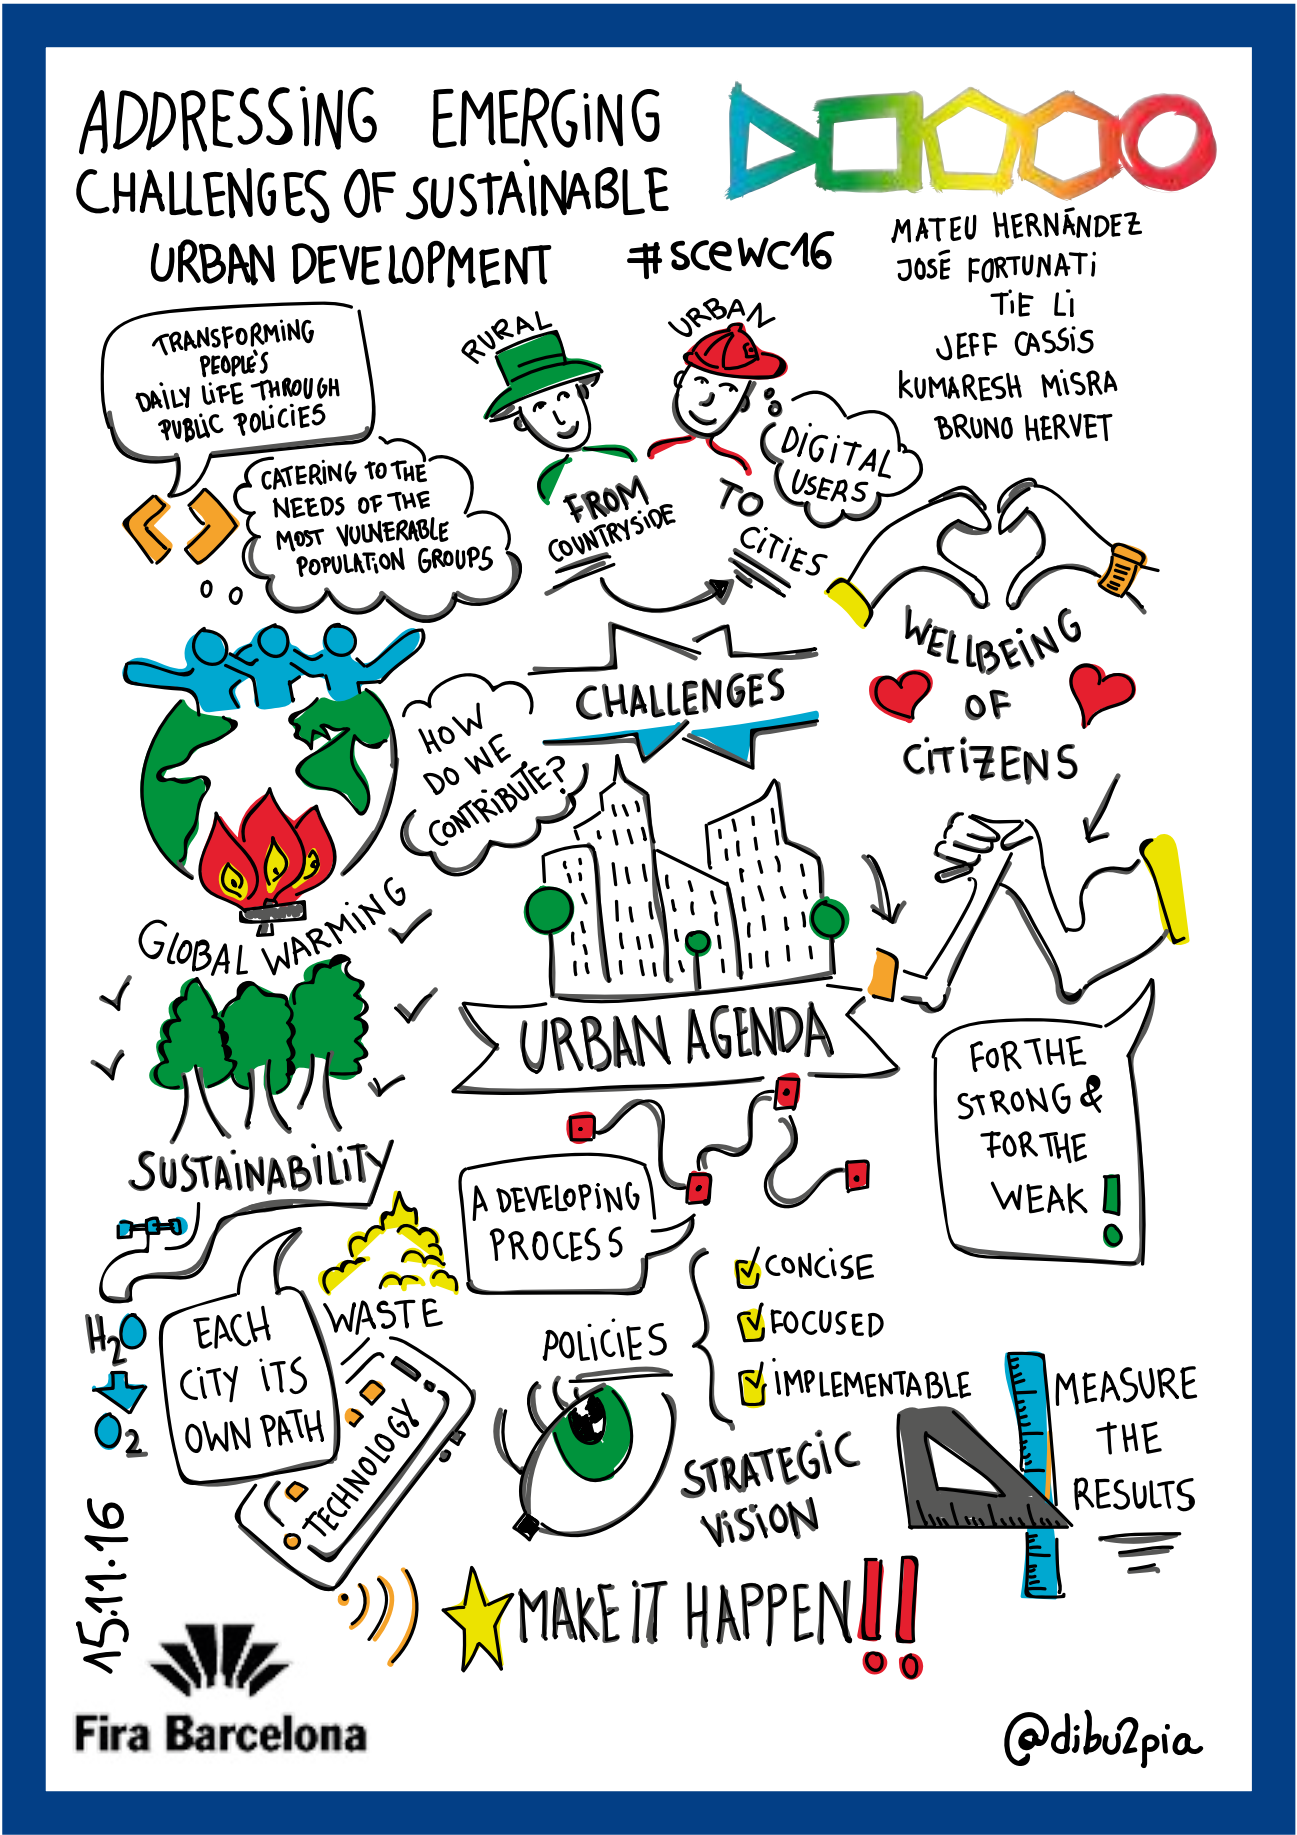 ADDRESSiNG EMERGiNG
CHALLENGES OF SUSTAiNABLE
URBAN DEVELOPMENT
#scewc16
MATEU HERNÁNDEZ
JOSÉ FORTUNATi
TiE Li
JEFF CASSiS
KUMARESH MiSRA
BRUNO HERVET
TRANSFORMiNG
PEOPLE'S
DAiLY LiFE THROUGH
PUBLiC POLiCiES
CATERiNG TO THE
NEEDS OF THE
MOST VULNERABLE
POPULATiON GROUPS
RURAL
URBAN
DiGiTAL
USERS
FROM
COUNTRYSiDE
TO
CiTiES
WELLBEiNG
OF
CiTiZENS
CHALLENGES
HOW
DO WE
CONTRiBUTE?
GLOBAL WARMiNG
URBAN AGENDA
FOR THE
STRONG &
FOR THE
WEAK!
SUSTAiNABiLiTY
A DEVELOPiNG
PROCESS
H2O
O2
EACH
CiTY iTS
OWN PATH
WASTE
TECHNOLOGY
POLiCiES
CONCiSE
FOCUSED
iMPLEMENTABLE
STRATEGiC
ViSiON
MEASURE
THE
RESULTS
MAKE iT HAPPEN!!
15.11.16
Fira Barcelona
@dibu2pia